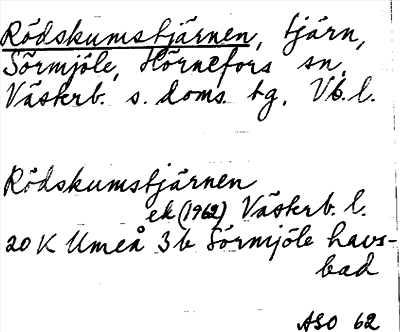 Rödskumstjärnen, tjärn,
Sörmjöle, Hörnefors sn,
Västerb. s. doms. tg, Vb. l.
Rödskumstjärnen
ek (1962) Västerb. l.
20 K Umeå 3 b Sörmjöle havs-
bad
ASO 62